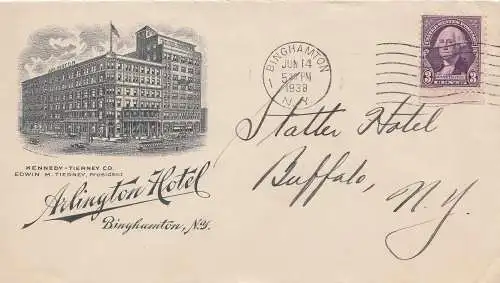 BINGHAMTON
JUN 14
PM
1938
N.Y.
UNITED STATES POSTAGE
3 3
CENTS
KENNEDY-TIERNEY CO.
EDWIN M. TIERNEY, President
Arlington Hotel
Binghamton, N.Y.
Statler Hotel
Buffalo,
N.Y.